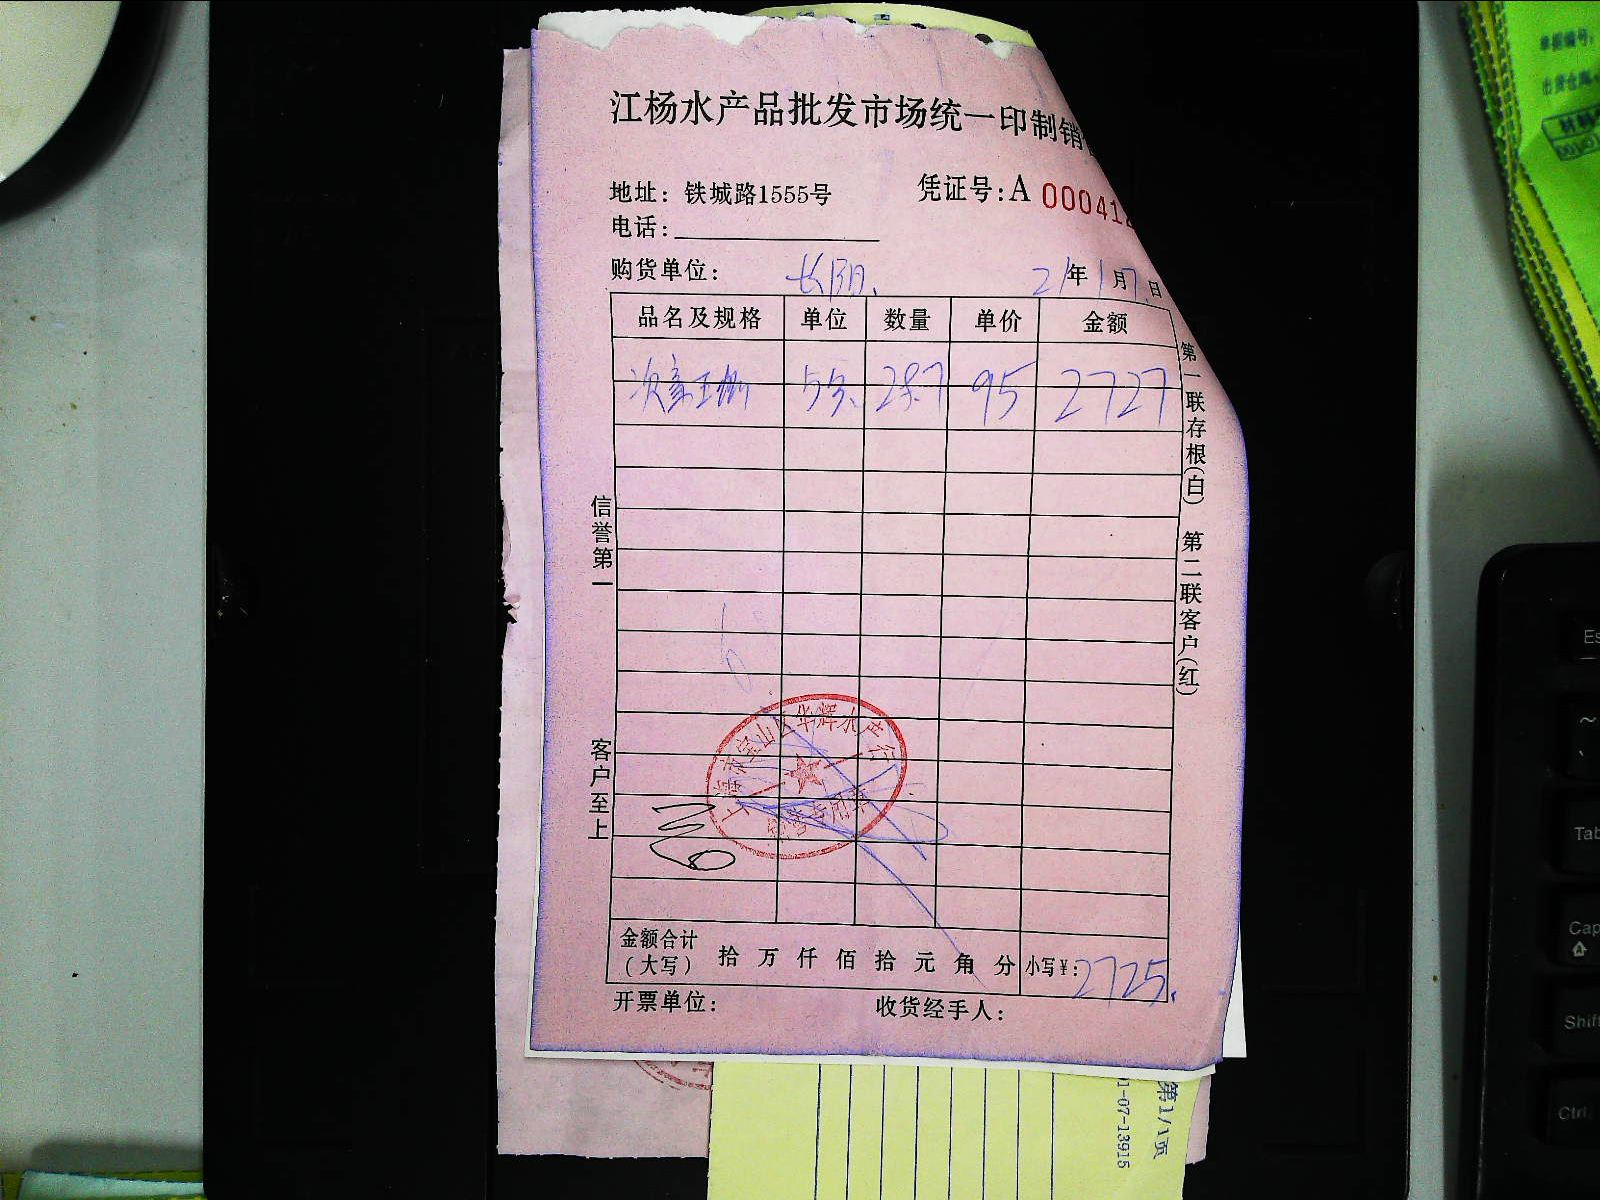 江杨水产品批发市场统一印制销
地址：铁城路1555号
凭证号：A 000412
电话：
购货单位：长阳
21年1月7日
品名及规格 单位 数量 单价 金额
28.7 95 2727
第一联存根（白） 第二联客户（红）
信誉第一
客户至上
上海市宝山区华辉水产行
金额合计（大写） 拾 万 仟 佰 拾 元 角 分 小写￥：2725.
开票单位： 收货经手人：
第1/1页
1-07-13915
单据编号：
出货仓库：
Es
~
Tab
Cap
Shift
Ctrl